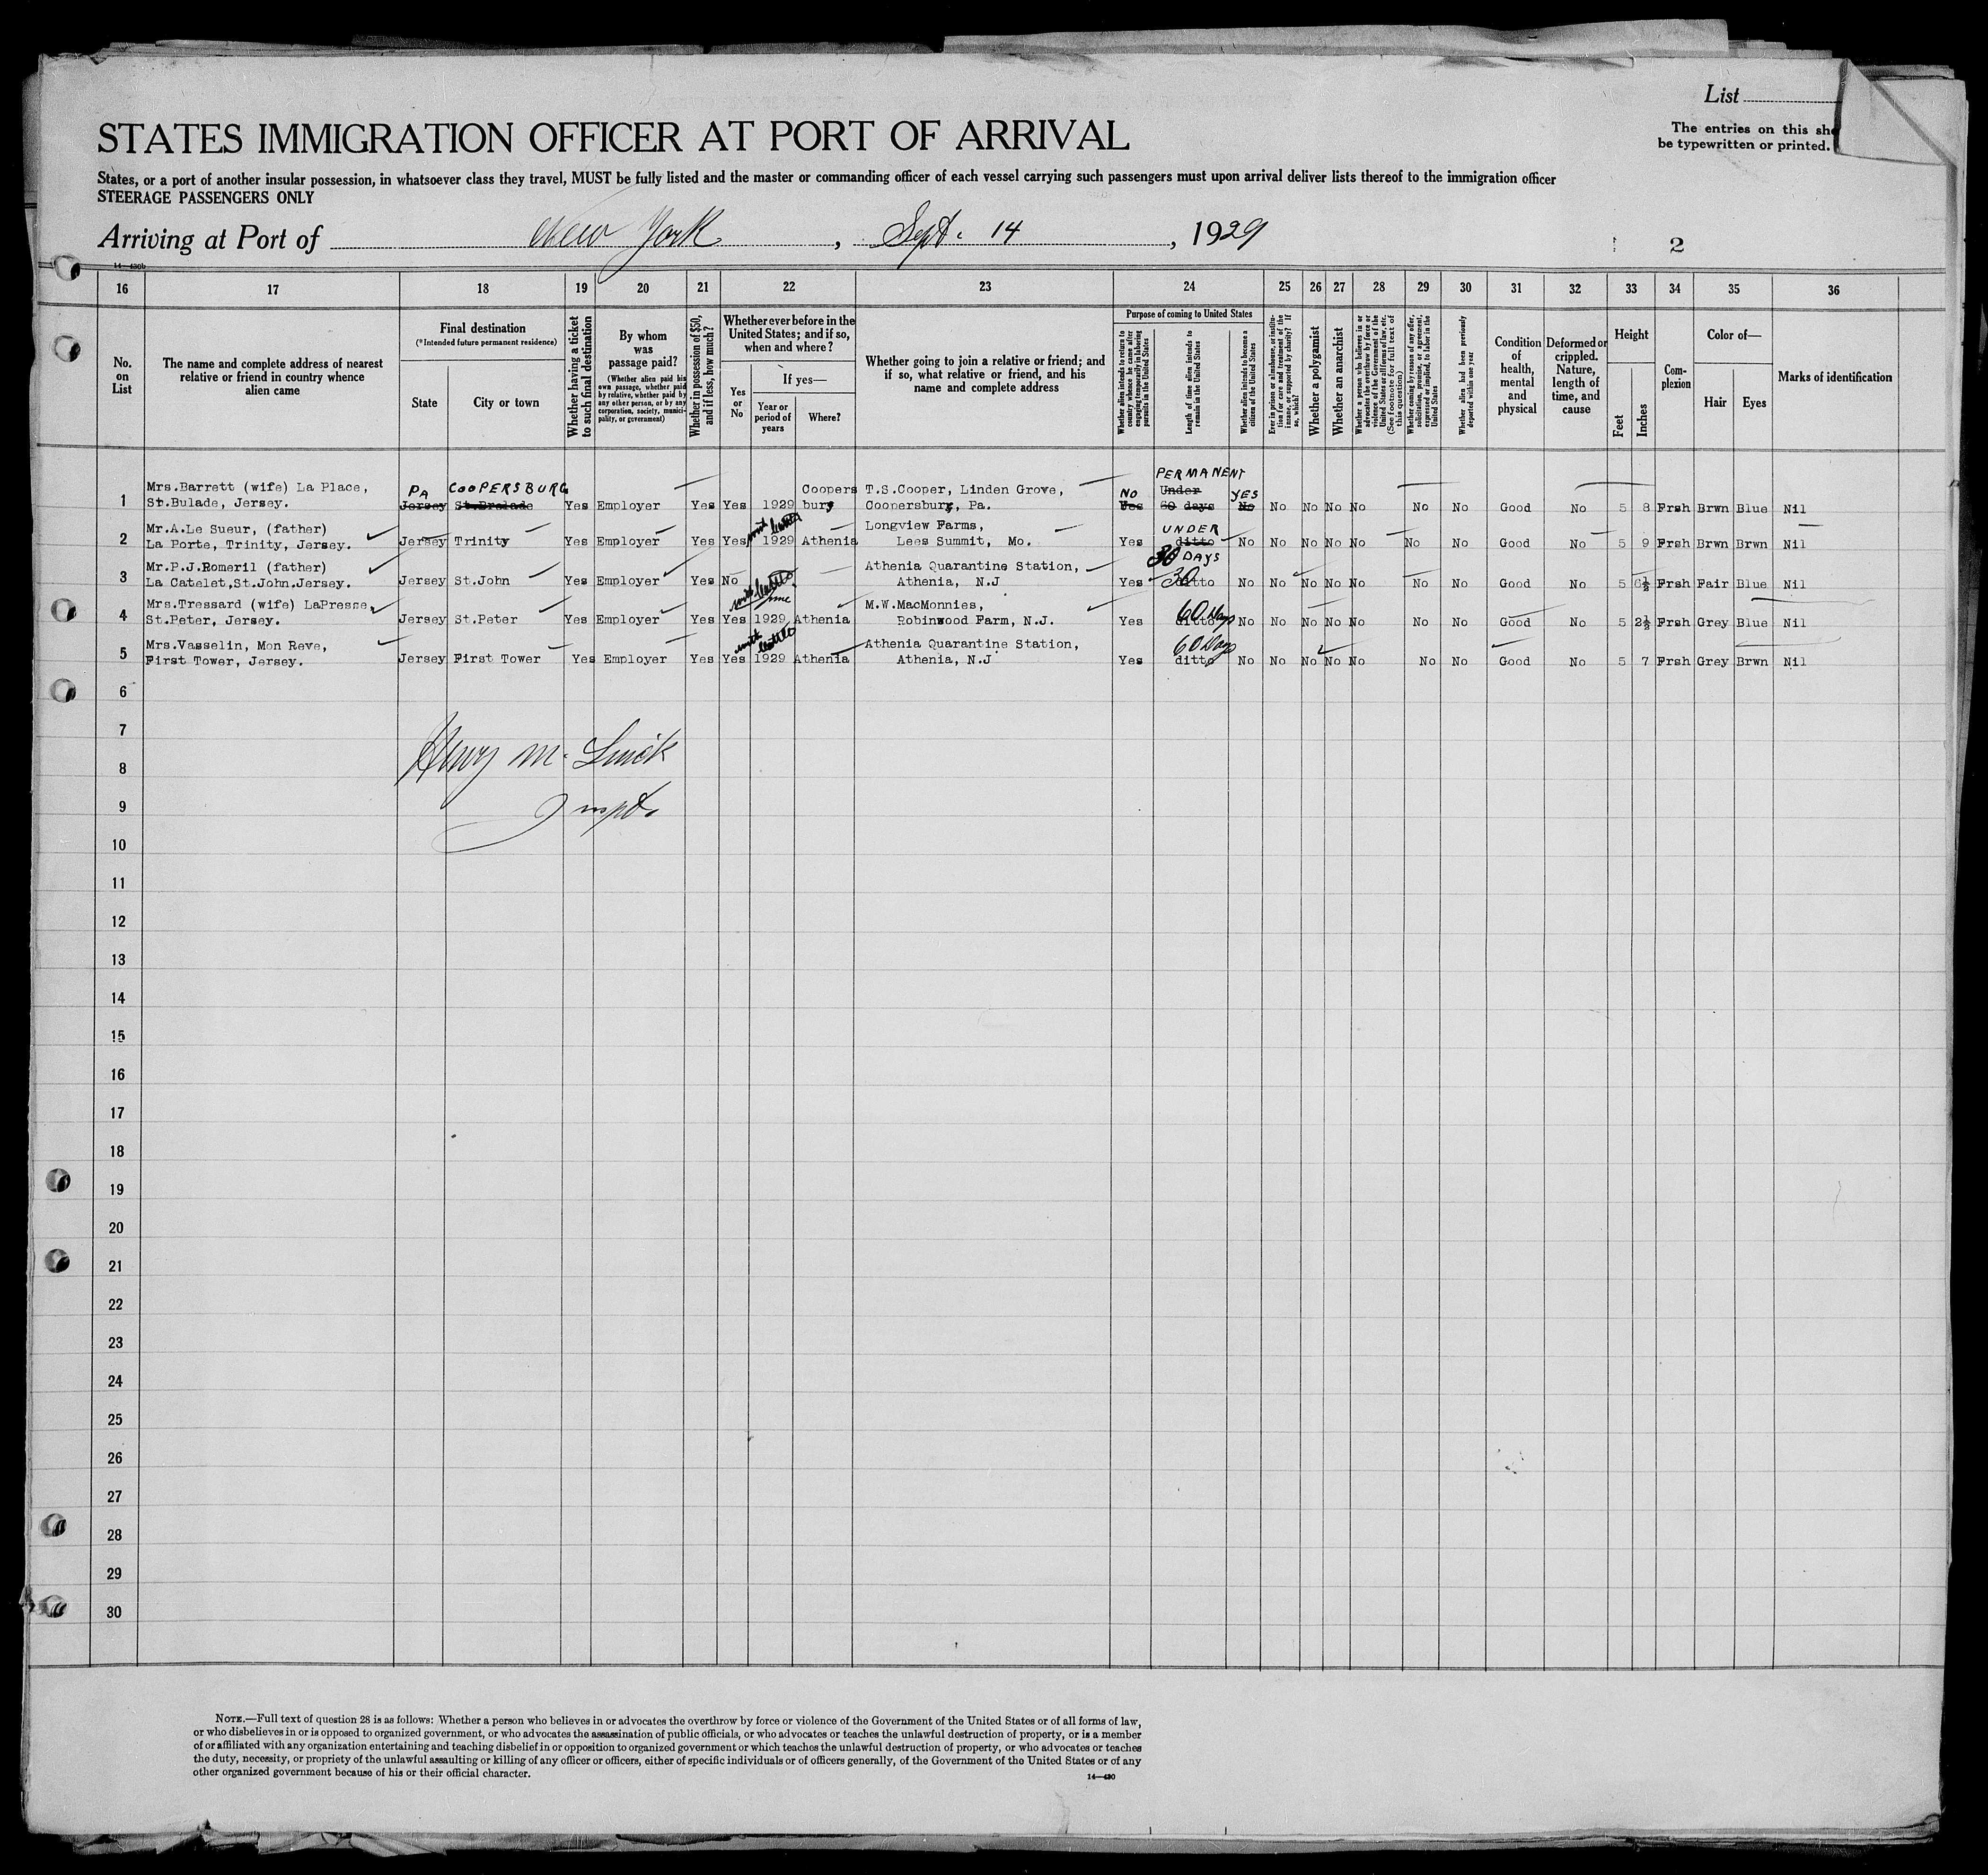 List
The entries on this she
be typewritten or printed.
STATES IMMIGRATION OFFICER AT PORT OF ARRIVAL
States, or a port of another insular possession, in whatsoever class they travel, MUST be fully listed and the master or commanding officer of each vessel carrying such passengers must upon arrival deliver lists thereof to the immigration officer
STEERAGE PASSENGERS ONLY
Arriving at Port of New York, Sept. 14, 1929
2
14—430b
16 17 18 19 20 21 22 23 24 25 26 27 28 29 30 31 32 33 34 35 36
No. on List
The name and complete address of nearest relative or friend in country whence alien came
Final destination
(*Intended future permanent residence)
State
City or town
Whether having a ticket to such final destination
By whom was passage paid?
(Whether alien paid his own passage, whether paid by relative, whether paid by any other person, or by any corporation, society, municipality, or government)
Whether in possession of $50, and if less, how much?
Whether ever before in the United States; and if so, when and where?
Yes or No
If yes—
Year or period of years
Where?
Whether going to join a relative or friend; and if so, what relative or friend, and his name and complete address
Purpose of coming to United States
Whether alien intends to return to country whence he came after engaging temporarily in laboring pursuits in the United States
Length of time alien intends to remain in the United States
Whether alien intends to become a citizen of the United States
Ever in prison or almshouse, or institution for care and treatment of the insane, or supported by charity? If so, which?
Whether a polygamist
Whether an anarchist
Whether a person who believes in or advocates the overthrow by force or violence of the Government of the United States or all forms of law, etc. (See footnote for full text of this question)
Whether coming by reason of any offer, solicitation, promise, or agreement, expressed or implied, to labor in the United States
Whether alien had been previously deported within one year
Condition of health, mental and physical
Deformed or crippled. Nature, length of time, and cause
Height
Feet
Inches
Complexion
Color of—
Hair
Eyes
Marks of identification
PERMANENT
Mrs.Barrett (wife) La Place, PA COOPERSBURG Coopers T.S.Cooper, Linden Grove, NO Under YES
1 St.Bulade, Jersey. Jersey St.Bralade Yes Employer Yes Yes 1929 bury Coopersburg, Pa. Yes 60 days No No No No No No No Good No 5 8 Frsh Brwn Blue Nil
Mr.A.Le Sueur, (father) Longview Farms, UNDER
2 La Porte, Trinity, Jersey. Jersey Trinity Yes Employer Yes Yes 1929 Athenia Lees Summit, Mo. Yes ditto No No No No No No No Good No 5 9 Frsh Brwn Brwn Nil
Mr.P.J.Romeril (father) Athenia Quarantine Station, 30 DAYS
3 La Catelet,St.John.Jersey. Jersey St.John Yes Employer Yes No Athenia, N.J Yes 30 ditto No No No No No No No Good No 5 6½ Frsh Fair Blue Nil
Mrs.Tressard (wife) LaPresse, M.W.MacMonnies, 60 Days
4 St.Peter, Jersey. Jersey St.Peter Yes Employer Yes Yes 1929 Athenia Robinwood Farm, N.J. Yes ditto No No No No No No No Good No 5 2½ Frsh Grey Blue Nil
Mrs.Vasselin, Mon Reve, with cattle Athenia Quarantine Station, 60 Days
5 First Tower, Jersey. Jersey First Tower Yes Employer Yes Yes 1929 Athenia Athenia, N.J Yes ditto No No No No No No No Good No 5 7 Frsh Grey Brwn Nil
6
7
8
9
Inspt.
10
11
12
13
14
15
16
17
18
19
20
21
22
23
24
25
26
27
28
29
30
NOTE.—Full text of question 28 is as follows: Whether a person who believes in or advocates the overthrow by force or violence of the Government of the United States or of all forms of law,
or who disbelieves in or is opposed to organized government, or who advocates the assassination of public officials, or who advocates or teaches the unlawful destruction of property, or is a member
of or affiliated with any organization entertaining and teaching disbelief in or opposition to organized government or which teaches the unlawful destruction of property, or who advocates or teaches
the duty, necessity, or propriety of the unlawful assaulting or killing of any officer or officers, either of specific individuals or of officers generally, of the Government of the United States or of any
other organized government because of his or their official character.
14—430